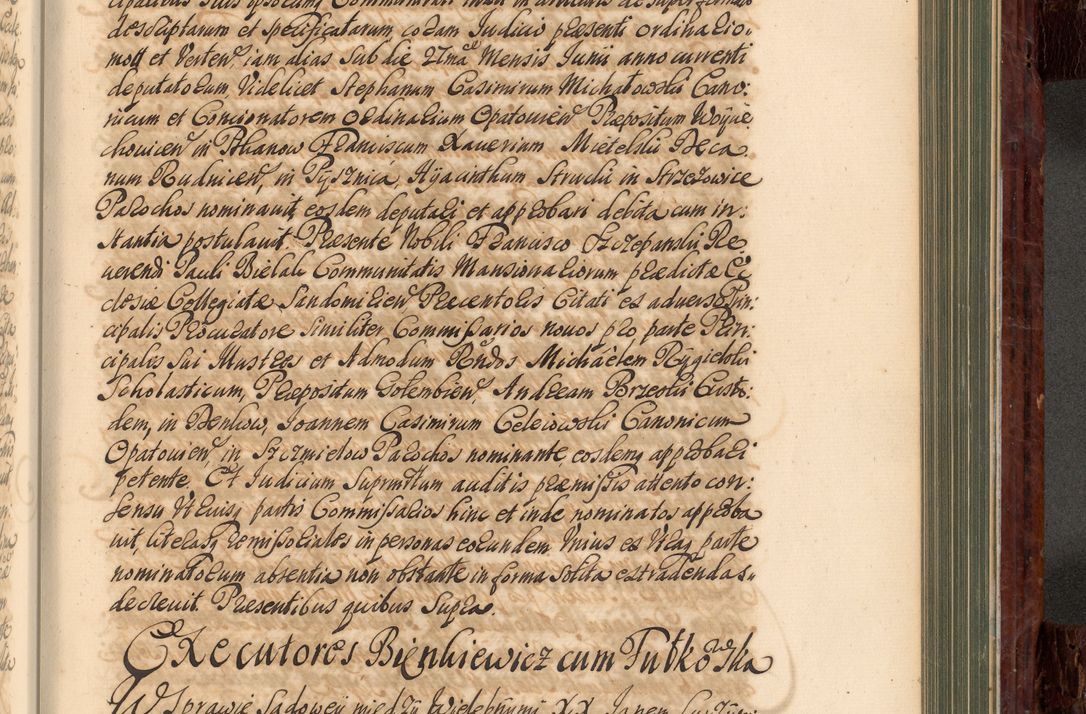 descriptarum et specificatarum coram Judicio præsenti ordinatio-
mott et Verten, iam alias sub die 27ma Mensis Junii anno currenti
deputatorum, Videlicet Stephanum Casimirum Michałowski Cano-
nicum et Concionatorem Ordinarium Opatovien, Præpositum Woycie
chovicen, in Ptkanow Franciscum Xaverium Mietelski Deca
num Rudnicen, in Pysznica, Hyacinthum in Strzezowice
Parochos nominavit, eosdem deputari et approbari debita cum in-
stantia postulavit. Præsente Nobili Francisco Szczepanski Re
verendi Pauli Bielak Communitatis Mansionariorum prædictæ Ec
clesiæ Collegiatæ Sandomirien, Præcentoris Citati es adverso Prin-
cipalis Procuratore similiter Commissarios novos pro parte Prin-
cipalis sui Illustres et Admodum Rndos Michaelem Rygielski
Scholasticum, Præpositum Golembien, Andream Brzeski Custo-
dem, in Denkow, Joannem Casimirum Celejowski Canonicum
Opatovien, in Szczmielow Parochos nominante, eosdemq approbari
petente. Et Judicium Suprmttum auditis præmissis attento con-
sensu Utriusq partis Commissarios hinc et inde nominatos approba
vit, literasq remissoriales in personas eorundem Unius es Utraq parte
nominatorum absentia non obstante in forma solita extradendas
decrevit. Præsentibus quibus Supra.
Executores Bienkiewicz cum Tutkowska
W Sprawie Sądowey między Wielebnymi XX. Janem